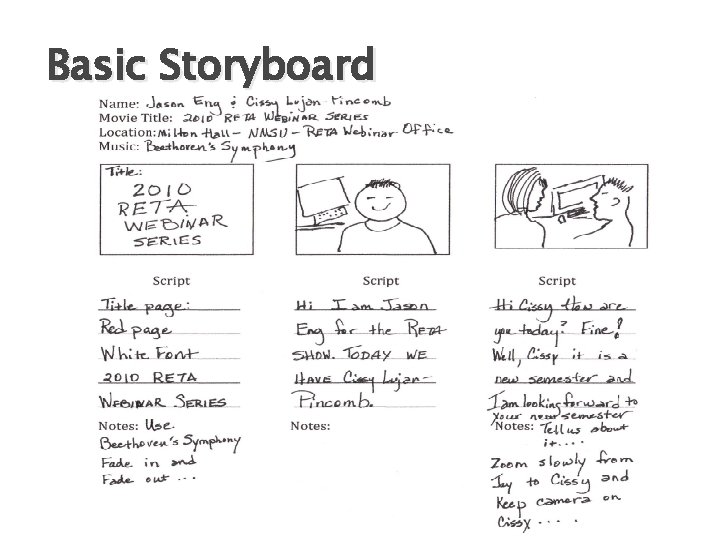 Basic Storyboard
Name: Jason Eng & Cissy Lujan-Pincomb
Movie Title: 2010 RETA WEBINAR SERIES
Location: Milton Hall - NMSU - RETA Webinar Office
Music: Beethoven's Symphony
Title:
2010
RETA
WEBINAR
SERIES
Script
Title page:
Red page
White Font
2010 RETA
WEBINAR SERIES
Notes: Use
Beethoven's Symphony
Fade in and
Fade out ...
Script
Hi I am Jason
Eng for the RETA
SHOW. TODAY WE
HAVE Cissy Lujan-
Pincomb.
Notes:
Script
Hi Cissy How are
you today? Fine!
Well, Cissy it is a
new semester and
I am looking forward to
your new semester
Notes: Tell us about
it....
Zoom slowly from
Jay to Cissy and
Keep camera on
Cissy ....